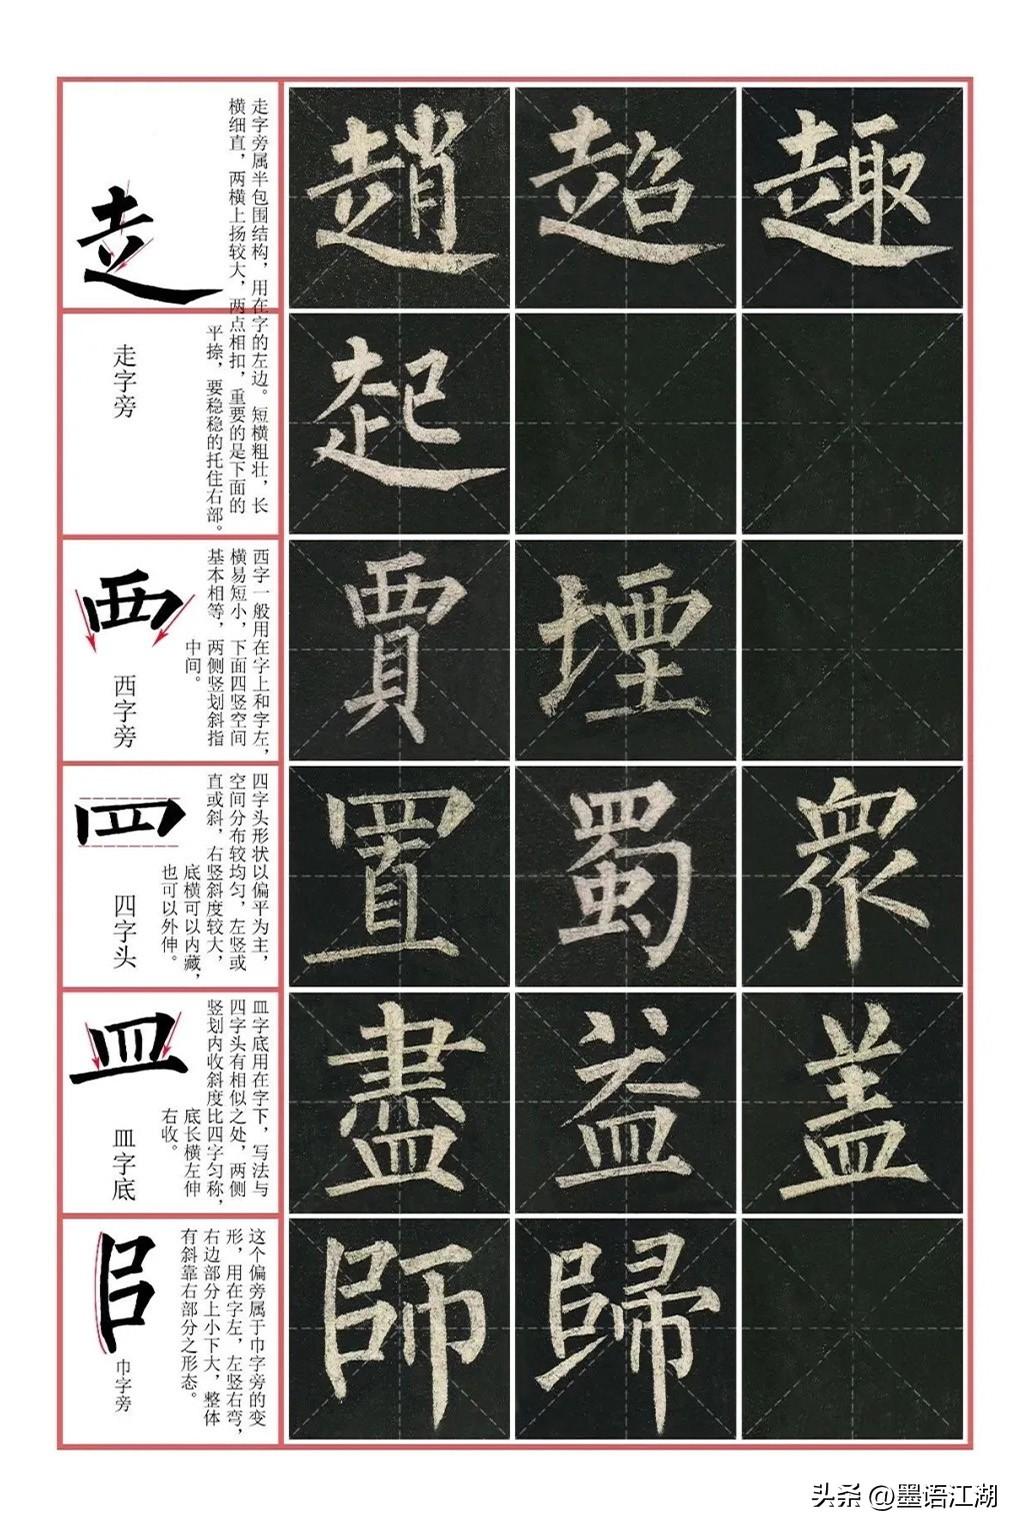 走
走字旁
走字旁属半包围结构，用在字的左边。短横粗壮，长
横细直，两横上扬较大，两点相扣，重要的是下面的
平捺，要稳稳的托住右部。
趙 超 趣
起
西
西字旁
西字一般用在字上和字左，
横易短小，下面四竖空间
基本相等，两侧竖划斜指
中间。
賈 堙
罒
四字头
四字头形状以偏平为主，
空间分布较均匀，左竖或
直或斜，右竖斜度较大，
底横可以内藏，
也可以外伸。
置 蜀 眾
皿
皿字底
皿字底用在字下，写法与
四字头有相似之处，两侧
竖划内收斜度比四字匀称，
底长横左伸
右收。
盡 益 盖
巾字旁
这个偏旁属于巾字旁的变
形，用在字左，左竖右弯，
右边部分上小下大，整体
有斜靠右部分之形态。
師 歸
头条 @墨语江湖